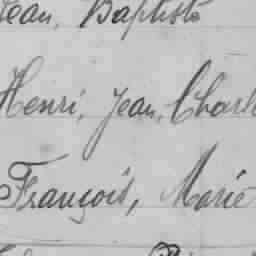 Jean, Baptiste
Henri, Jean, Charl
François, Marie